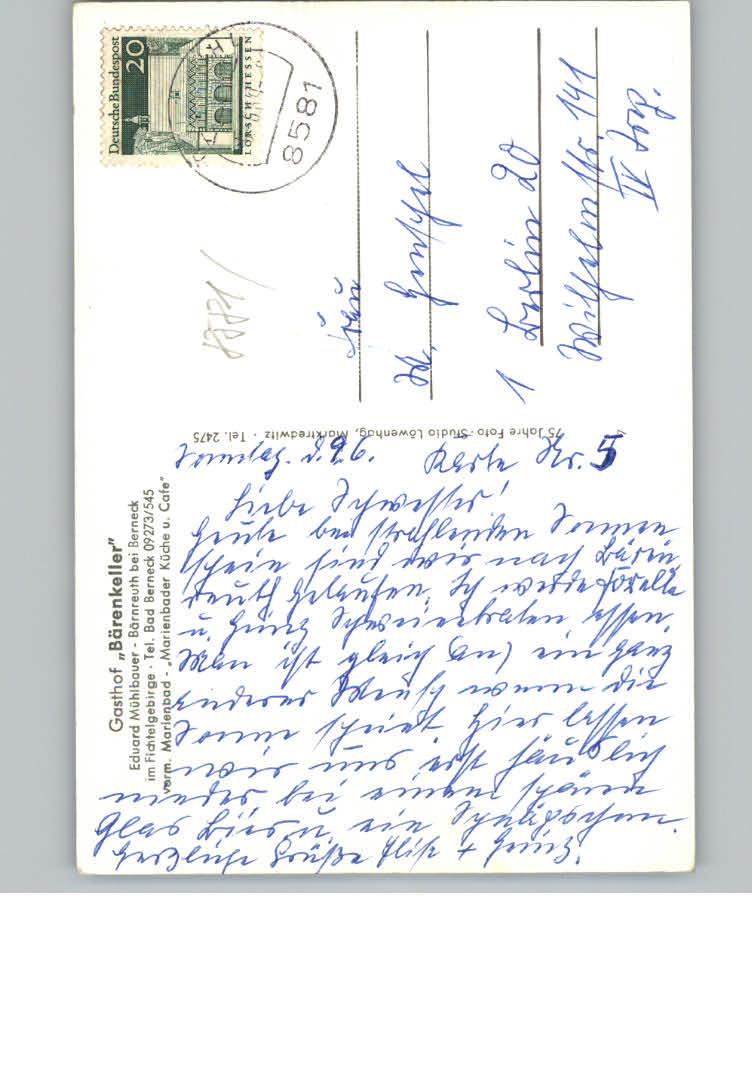 Gasthof „Bärenkeller"
Eduard Mühlbauer - Bärnreuth bei Berneck
im Fichtelgebirge · Tel. Bad Berneck 09273/545
vorm. Marienbad - „Marienbader Küche u. Cafe"
75 Jahre Foto-Studio Löwenhag, Marktredwitz · Tel. 2475
Deutsche Bundespost
20
LORSCH/HESSEN
8581
Sonntag. d. 9.6. Karte Nr. 5
Liebe Schwester!
Heute bei strahlenden Sonnen
schein sind wir nach Bärn
reuth gelaufen. Ich werde Forelle
u. Heinz Schweinebraten essen.
Man ist gleich ein ganz
anderer Mensch wenn die
Sonne scheint. Hier lassen
wir uns erst häuslich
nieder, bei einem
Glas Bier u. ein Schnäpschen.
Herzliche Grüße Elise + Heinz.
Frau
M. Henschel
1 Berlin 20
Wilhelmstr. 141
II